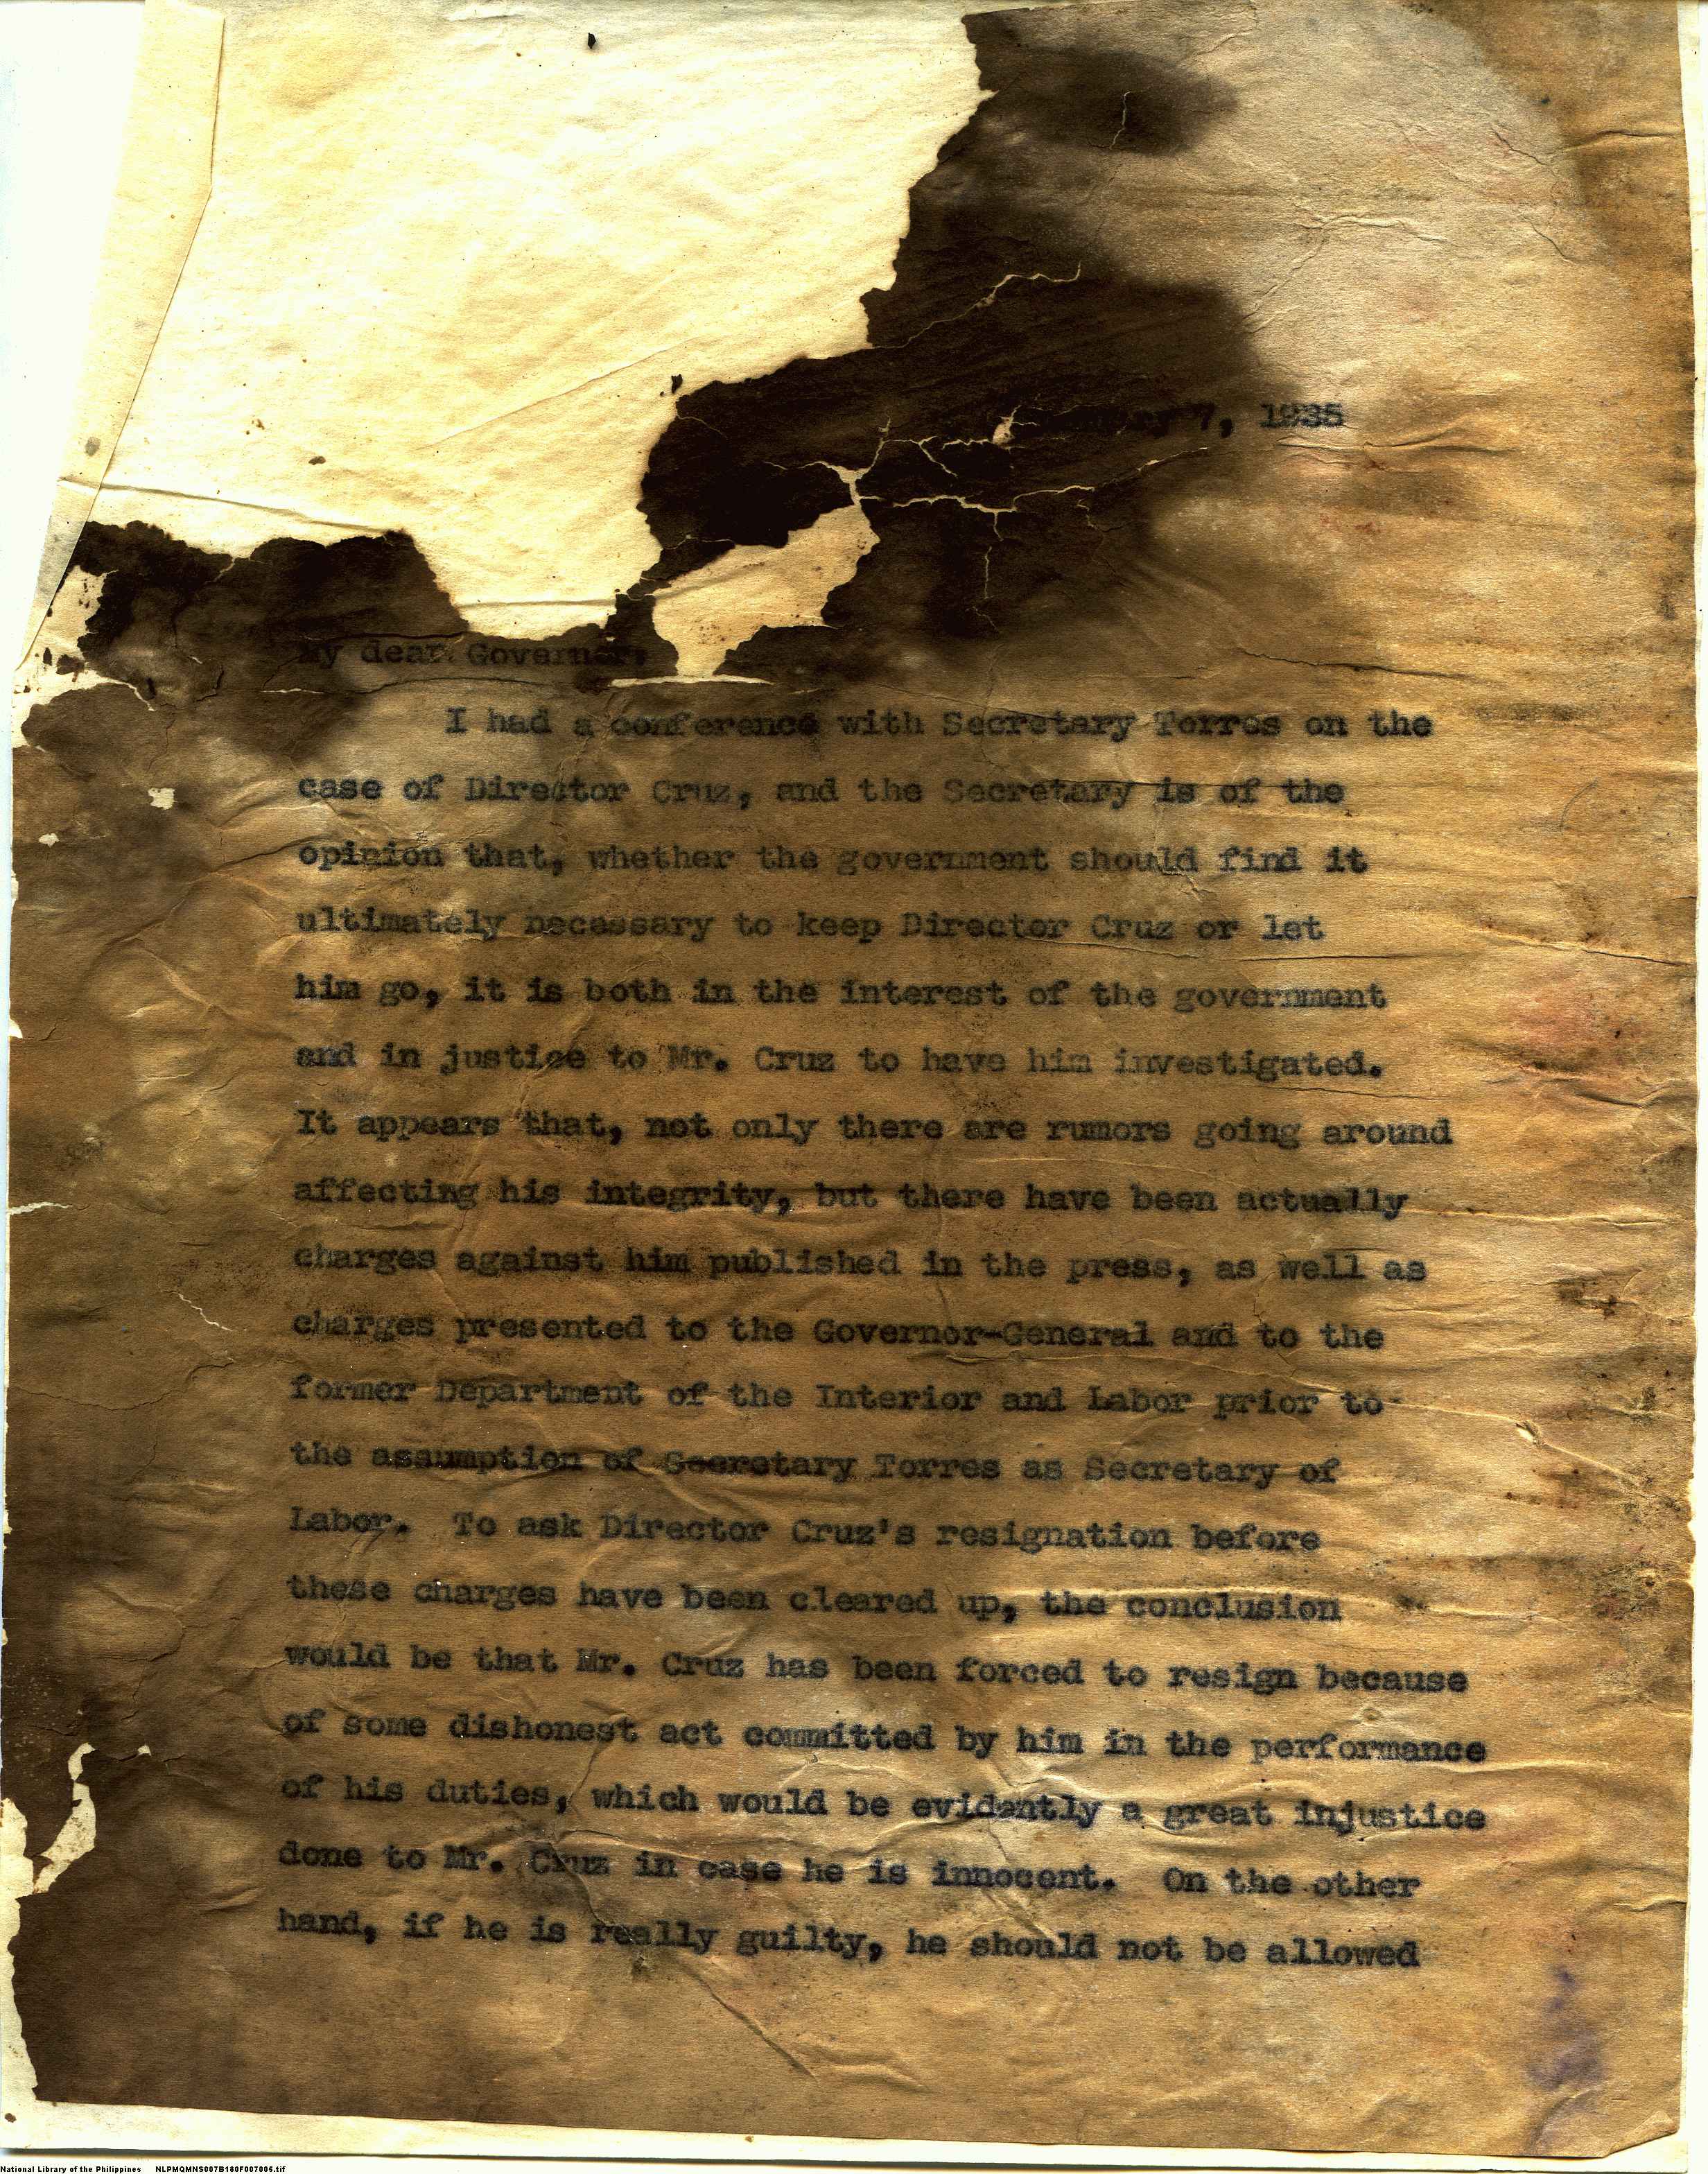 7, 1935
My dear Governor,
I had a conference with Secretary Torres on the
case of Director Cruz, and the Secretary is of the
opinion that, whether the government should find it
ultimately necessary to keep Director Cruz or let
him go, it is both in the interest of the government
and in justice to Mr. Cruz to have him investigated.
It appears that, not only there are rumors going around
affecting his integrity, but there have been actually
charges against him published in the press, as well as
charges presented to the Governor-General and to the
former Department of the Interior and Labor prior to
the assumption of Secretary Torres as Secretary of
Labor. To ask Director Cruz's resignation before
these charges have been cleared up, the conclusion
would be that Mr. Cruz has been forced to resign because
of some dishonest act committed by him in the performance
of his duties, which would be evidently a great injustice
done to Mr. Cruz in case he is innocent. On the other
hand, if he is really guilty, he should not be allowed
National Library of the Philippines NLPMQMNS007B180F007005.tif